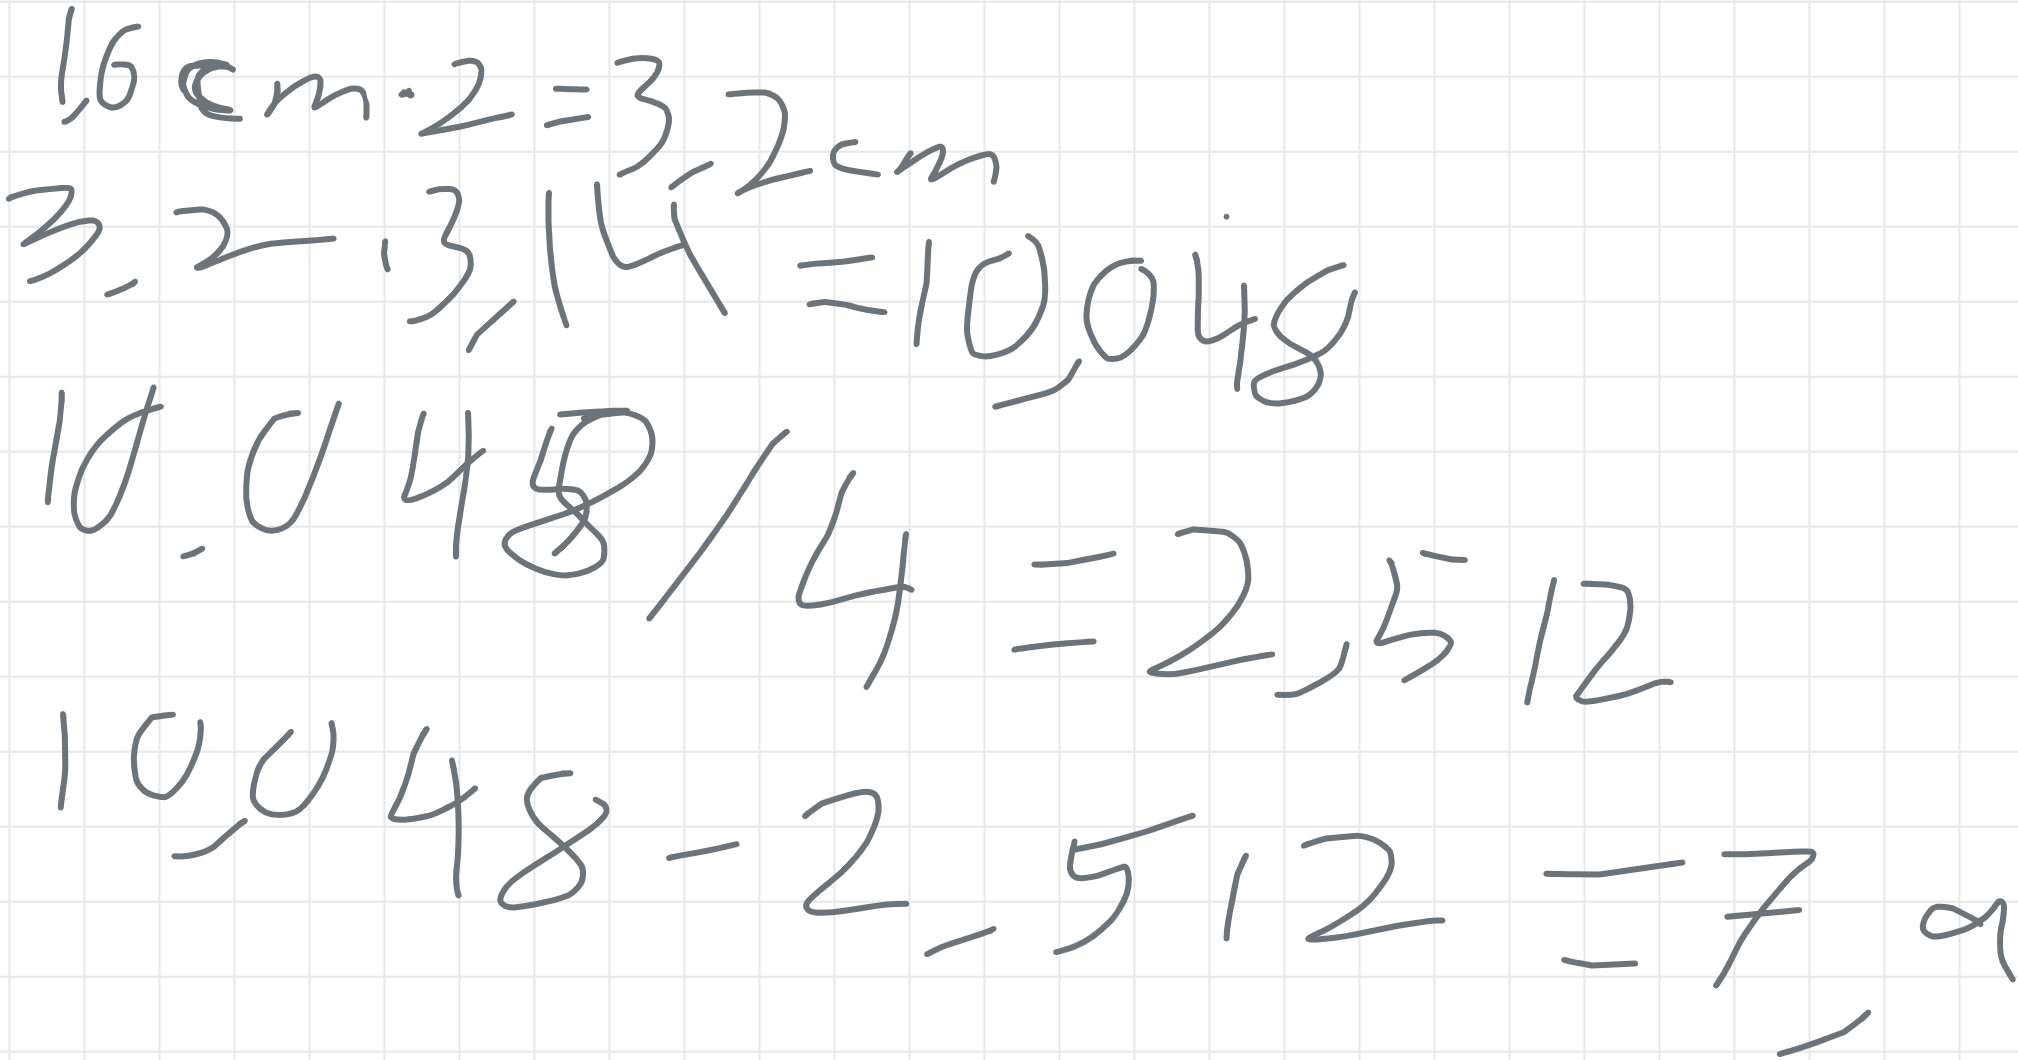 1,6 cm · 2 = 3,2 cm
3,2 · 3,14 = 10,048
10,048 / 4 = 2,512
10,048 - 2,512 = 7,